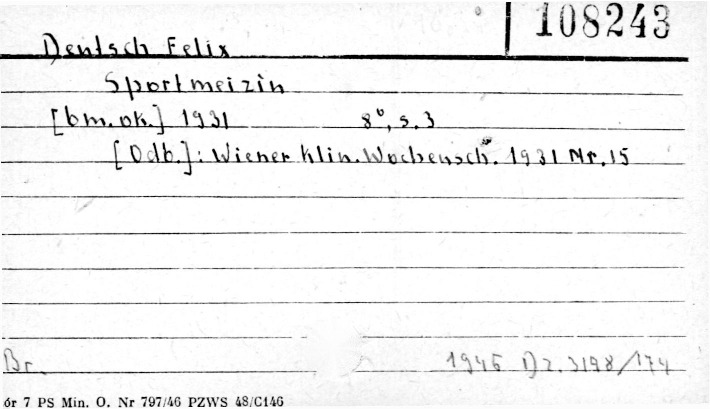 108243
Deutsch Felix
Sportmeizin
[bm.ok.] 1931 8°, s. 3
[Odb.]: Wiener klin. Wochensch. 1931 Nr. 15
Br. 1946 Dz. 3198/174
ór 7 PS Min. O. Nr 797/46 PZWS 48/C146